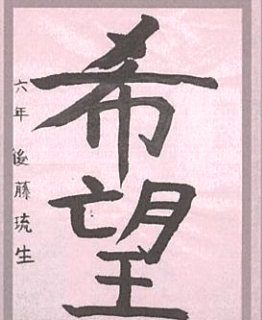 希望
六年 後藤琉生